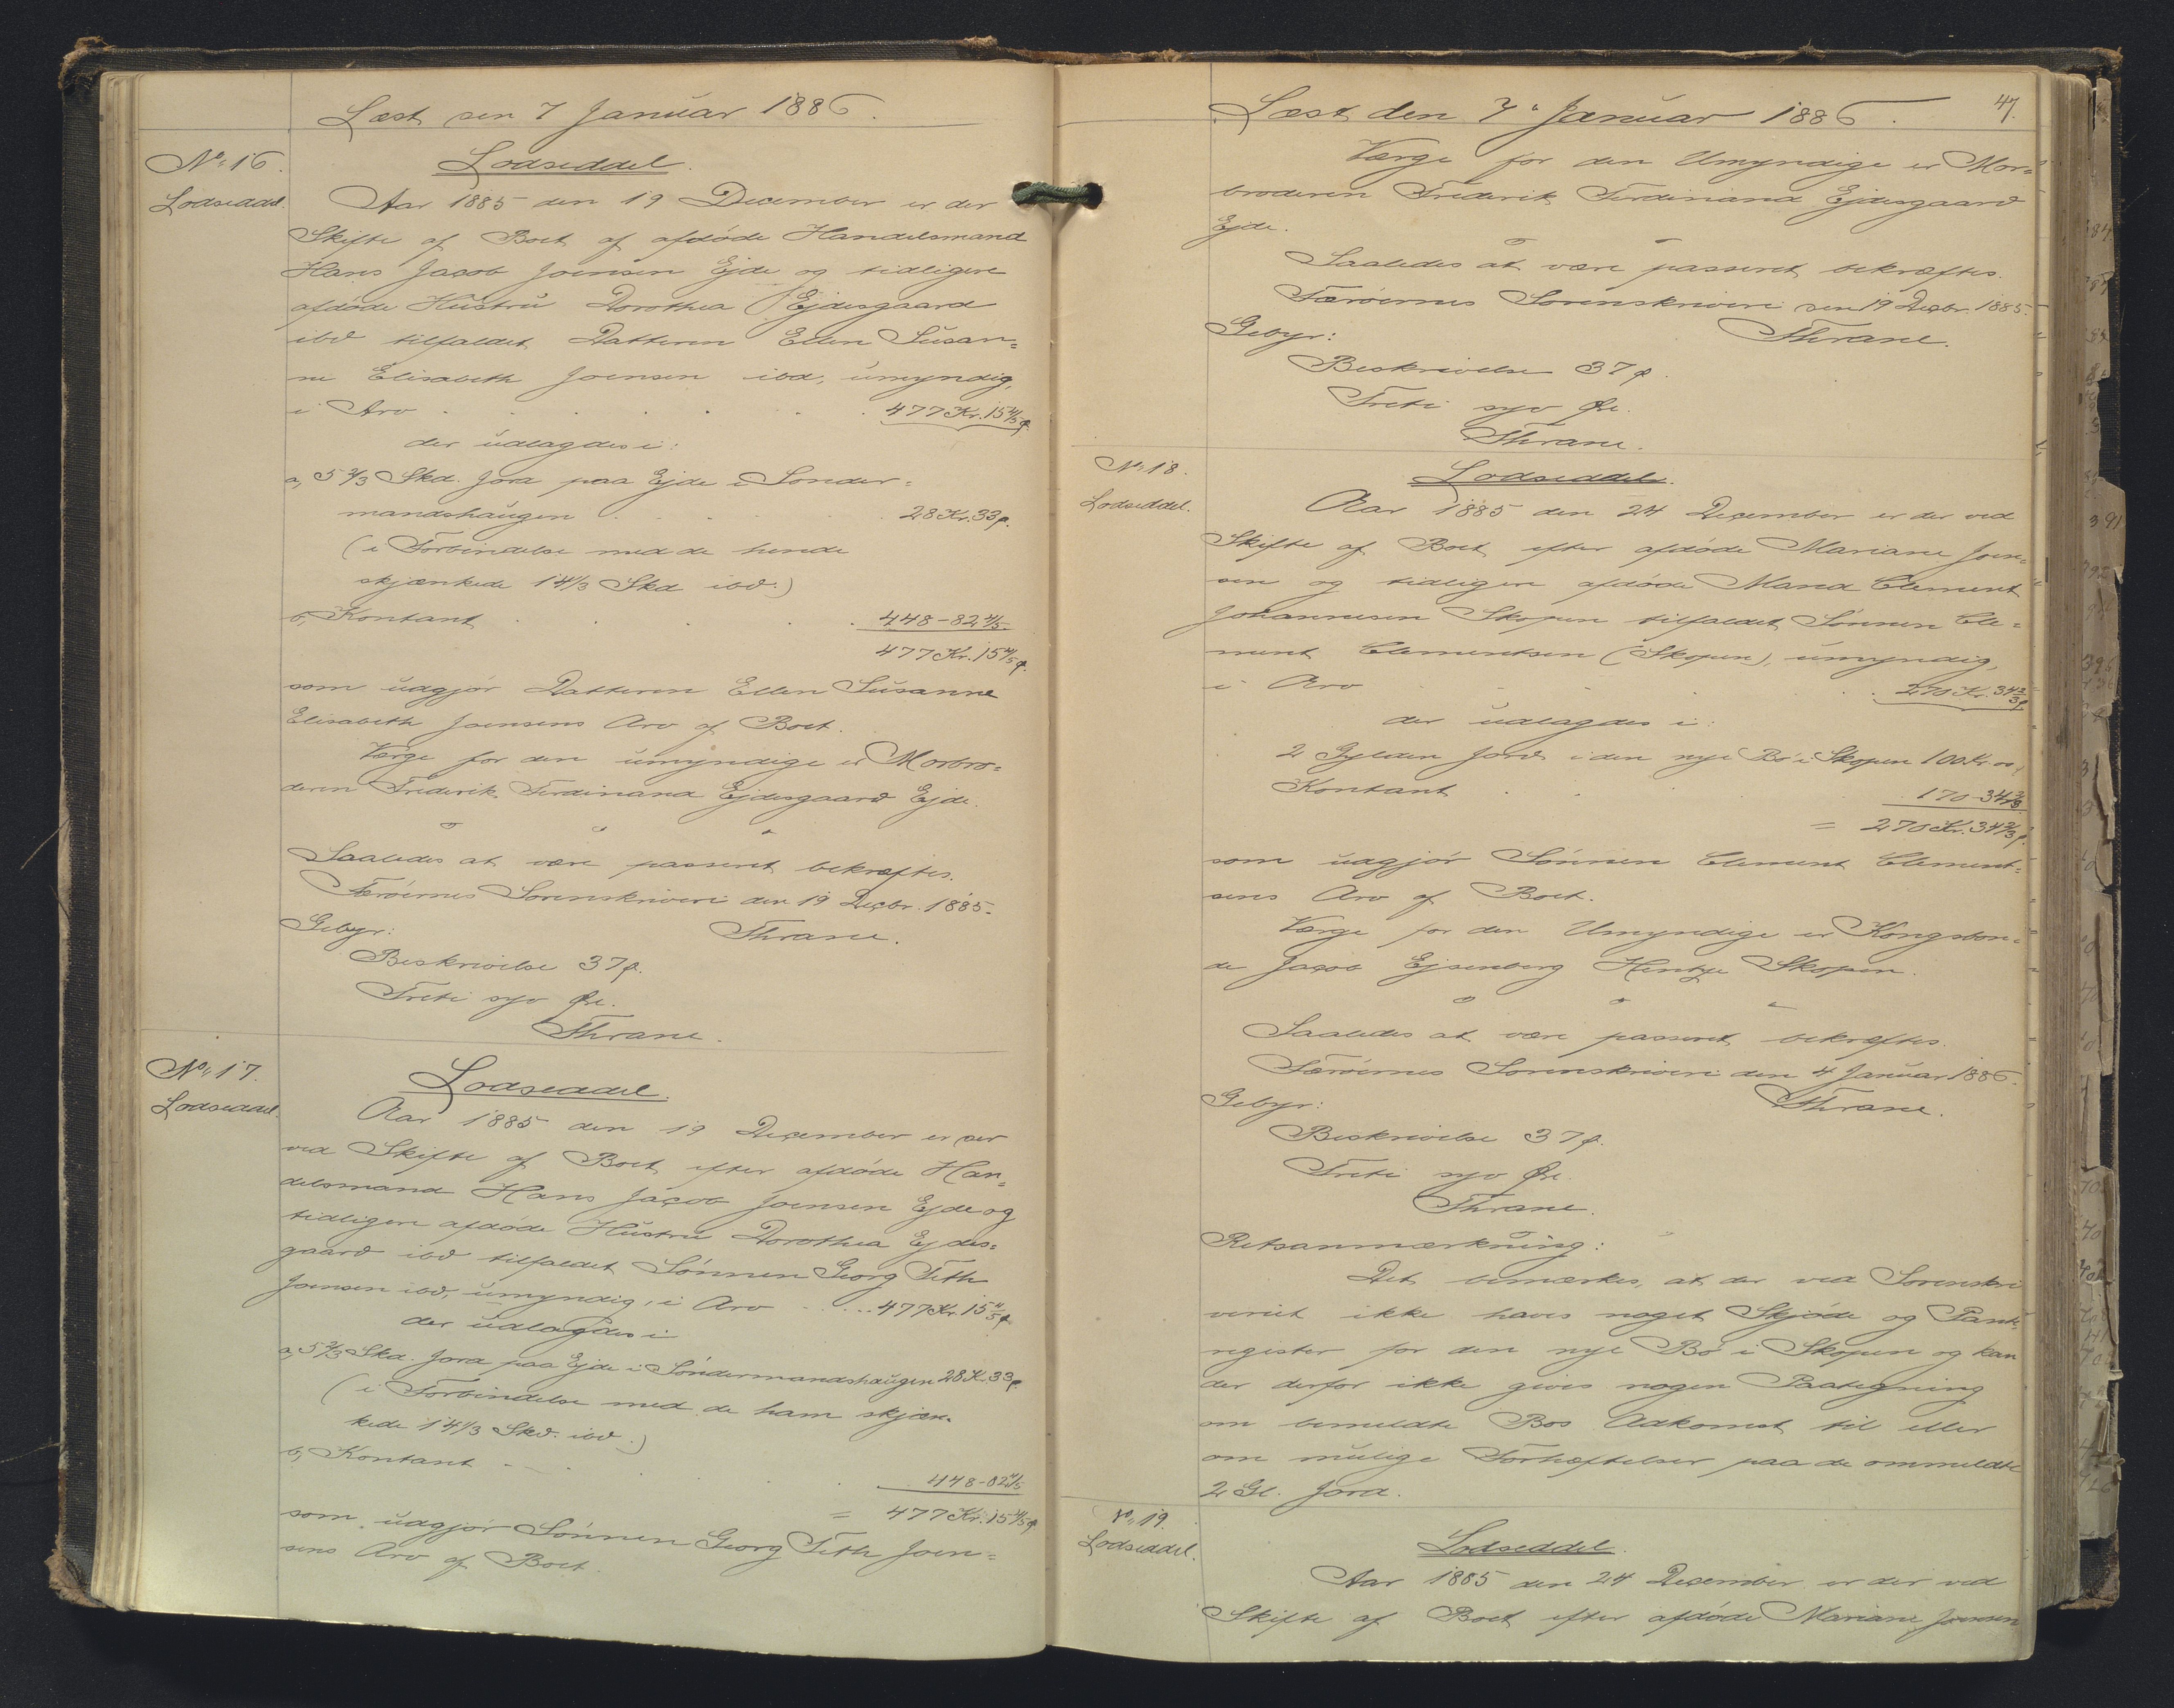 Læst den 7 Januar 1886.
No. 16.
Lodseddel.
Lodseddel.
Aar 1885 den 19 December er der
Skifte af Boet af afdøde Handelsmand
Hans Jacob Joensen Ejde og tidligere
afdøde Hustru Dorothea Ejdesgaard
ibd tilfaldet Datteren Ellen Susan=
ne Elisabeth Joensen ibd, umyndig,
i Arv . . . . . 477 Kr. 15 4/5 ø.
der udlagdes i:
a, 5 2/3 Skd. Jord paa Ejde i Sønder=
mandshaugen . . . . 28 Kr. 33 ø.
(i Forbindelse med de hende
skjænkede 14 1/3 Skd ibd.)
b, Kontant . . . . 448-82 4/5
477 Kr. 15 4/5 ø.
som udgjør Datteren Ellen Susanne
Elisabeth Joensens Arv af Boet.
Værge for den umyndige er Morbro=
deren Frederik Ferdinand Ejdesgaard Ejde.
Saaledes at være passeret bekræftes.
Færøernes Sorenskriveri den 19 Decbr. 1885.
Gebyr: Thrane.
Beskrivelse 37 ø.
Treti syv Øre.
Thrane.
No. 17.
Lodseddel.
Lodseddel.
Aar 1885 den 19 December er der
ved Skifte af Boet efter afdøde Han=
delsmand Hans Jacob Joensen Ejde og
tidligere afdøde Hustru Dorothea Ejdes=
gaard ibd tilfaldet Sønnen Georg Seth
Joensen ibd, umyndig, i Arv . . . . 477 Kr. 15 4/5 ø
der udlagdes i
a, 5 2/3 Skd. Jord paa Ejde i Søndermandshaugen 28 K. 33 ø.
(i Forbindelse med de ham skjæn=
kede 14 1/3 Skd. ibd.)
b, Kontant . . . . 448-82 4/5
= 477 Kr. 15 4/5 ø
som udgjør Sønnen Georg Seth Joen=
sens Arv af Boet.
Læst den 7. Januar 1886. 47.
Værge for den Umyndige er Mor=
broderen Frederik Ferdinand Ejdesgaard
Ejde.
Saaledes at være passeret bekræftes.
Færøernes Sorenskriveri den 19 Decbr. 1885.
Gebyr: Thrane.
Beskrivelse 37 ø.
Treti syv Øre.
Thrane.
No. 18.
Lodseddel.
Lodseddel.
Aar 1885 den 24 December er der ved
Skifte af Boet efter afdøde Mariane Joen=
sen og tidligere afdøde Mand Clement
Johannesen Skopen tilfaldet Sønnen Cle=
ment Clementsen (Skopen), umyndig,
i Arv . . . . 270 Kr. 34 2/3 ø
der udlagdes i:
2 Gylden Jord i den nye Bø i Skopen 100 Kr.
Kontant . . . 170-34 2/3
= 270 Kr. 34 2/3 ø.
som udgjør Sønnen Clement Clement=
sens Arv af Boet.
Værge for den Umyndige er Kongsbon=
de Jacob Ejsenberg Hentze Skopen.
Saaledes at være passeret bekræftes.
Færøernes Sorenskriveri den 4 Januar 1886.
Gebyr: Thrane.
Beskrivelse 37 ø.
Treti syv Øre.
Thrane.
Retsanmærkning:
Det bemærkes, at der ved Sorenskri
veriet ikke haves noget Skjøde og Pant=
register for den nye Bø i Skopen og kan
der derfor ikke gives nogen Paategning
om bemeldte Bos Adkomst til eller
om mulige Forhæftelser paa de ommeldte
2 Gl. Jord.
No. 19.
Lodseddel.
Lodseddel.
Aar 1885 den 24 December er der ved
Skifte af Boet efter afdøde Mariane Joensen